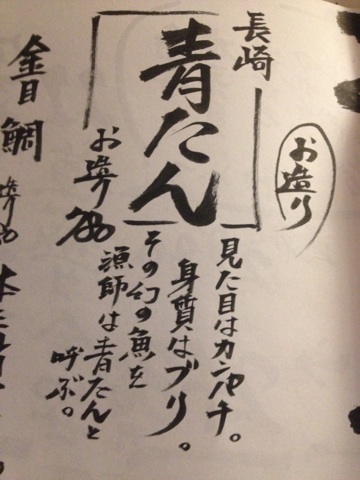 お造り
長崎
青たん
お造り
見た目はカンパチ。
身質はブリ。
その幻の魚を
漁師は青たんと
呼ぶ。
金目鯛